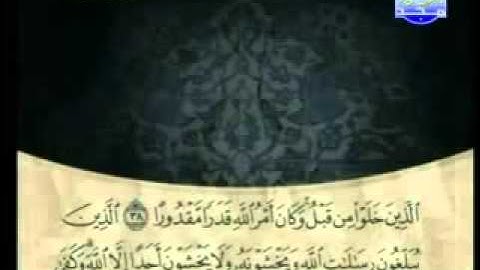 الَّذِينَ خَلَوْا مِن قَبْلُ وَكَانَ أَمْرُ اللَّهِ قَدَرًا مَّقْدُورًا ٣٨ الَّذِينَ
يُبَلِّغُونَ رِسَالَاتِ اللَّهِ وَيَخْشَوْنَهُ وَلَا يَخْشَوْنَ أَحَدًا إِلَّا اللَّهَ وَكَفَى